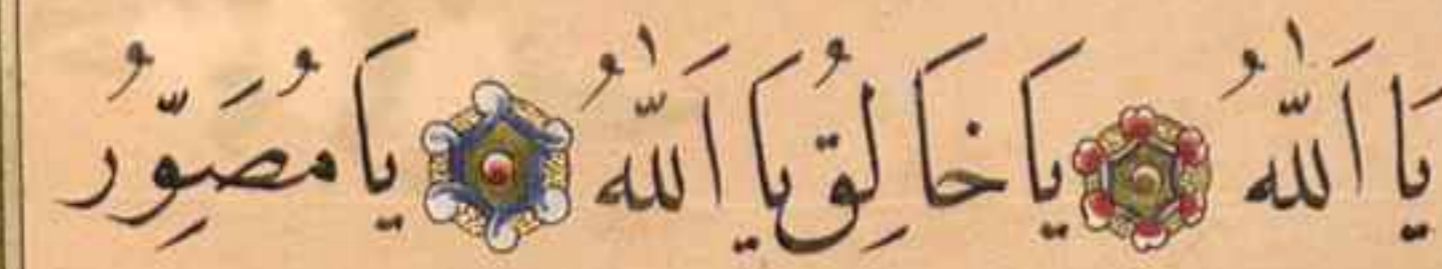 يَا اَللّٰهُ يَا خَالِقُ يَا اَللّٰهُ يَا مُصَوِّرُ